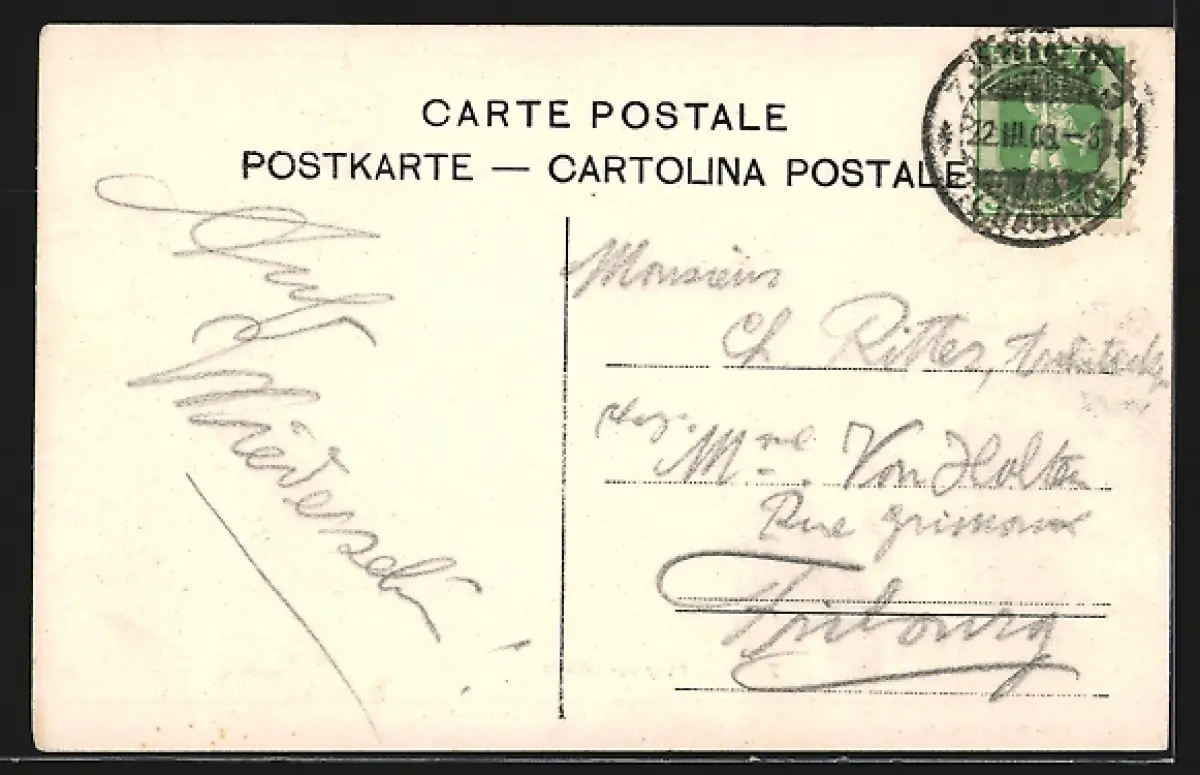 CARTE POSTALE
POSTKARTE — CARTOLINA POSTALE
22.III.08.
Auf
Wiedersehn!
Monsieur
Ch. Ritter,
Mme. Von Holten
Rue Grimoux
Fribourg